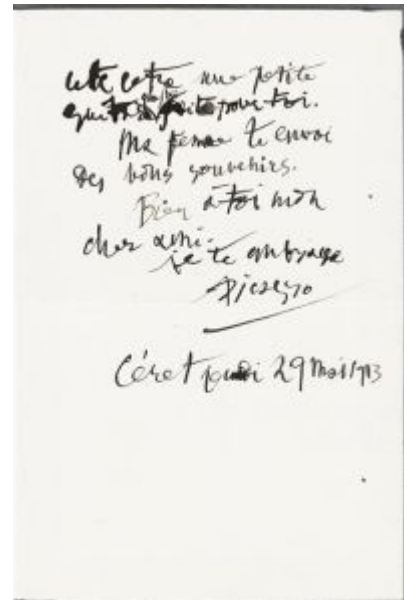 cette lettre une petite
qui pour toi.
Ma femme te envoi
des bons souvenirs.
Bien a toi mon
cher ami.
je te embrasse
Picasso
Céret jeudi 29 Mai 1913